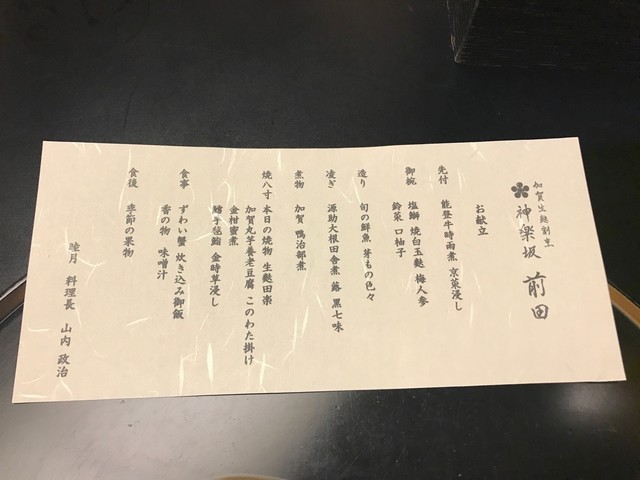 加賀生麩割烹
神楽坂 前田
お献立
先付 能登牛時雨煮 京菜浸し
御椀 塩鰤 焼白玉麩 梅人参
鈴菜 口柚子
造り 旬の鮮魚 芽もの色々
凌ぎ 源助大根田舎煮 蕗 黒七味
煮物 加賀 鴨治部煮
焼八寸 本日の焼物 生麩田楽
加賀丸芋養老豆腐 このわた掛け
金柑蜜煮
鱈子毬鮨 金時草浸し
食事 ずわい蟹 炊き込み御飯
香の物 味噌汁
食後 季節の果物
睦月 料理長 山内 政治